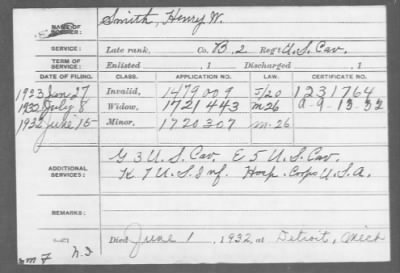 NAME OF SOLDIER: Smith, Henry W.
SERVICE: Late rank, Co. B. 2 Reg't U.S. Cav.
TERM OF SERVICE: Enlisted , 1 Discharged , 1
DATE OF FILING. CLASS. APPLICATION NO. LAW. CERTIFICATE NO.
1923 Jan 27 Invalid, 1479009 J/20 1231764
1932 July 8 Widow, 1721443 M 26 A-9-13-32
1932 June 15 Minor, 1720307 M-26
ADDITIONAL SERVICES: G 3 U.S. Cav. E 5 U.S. Cav.
K 7 U.S. Inf. Hosp. Corps U.S.A.
REMARKS:
Died June 1, 1932, at Detroit, Mich